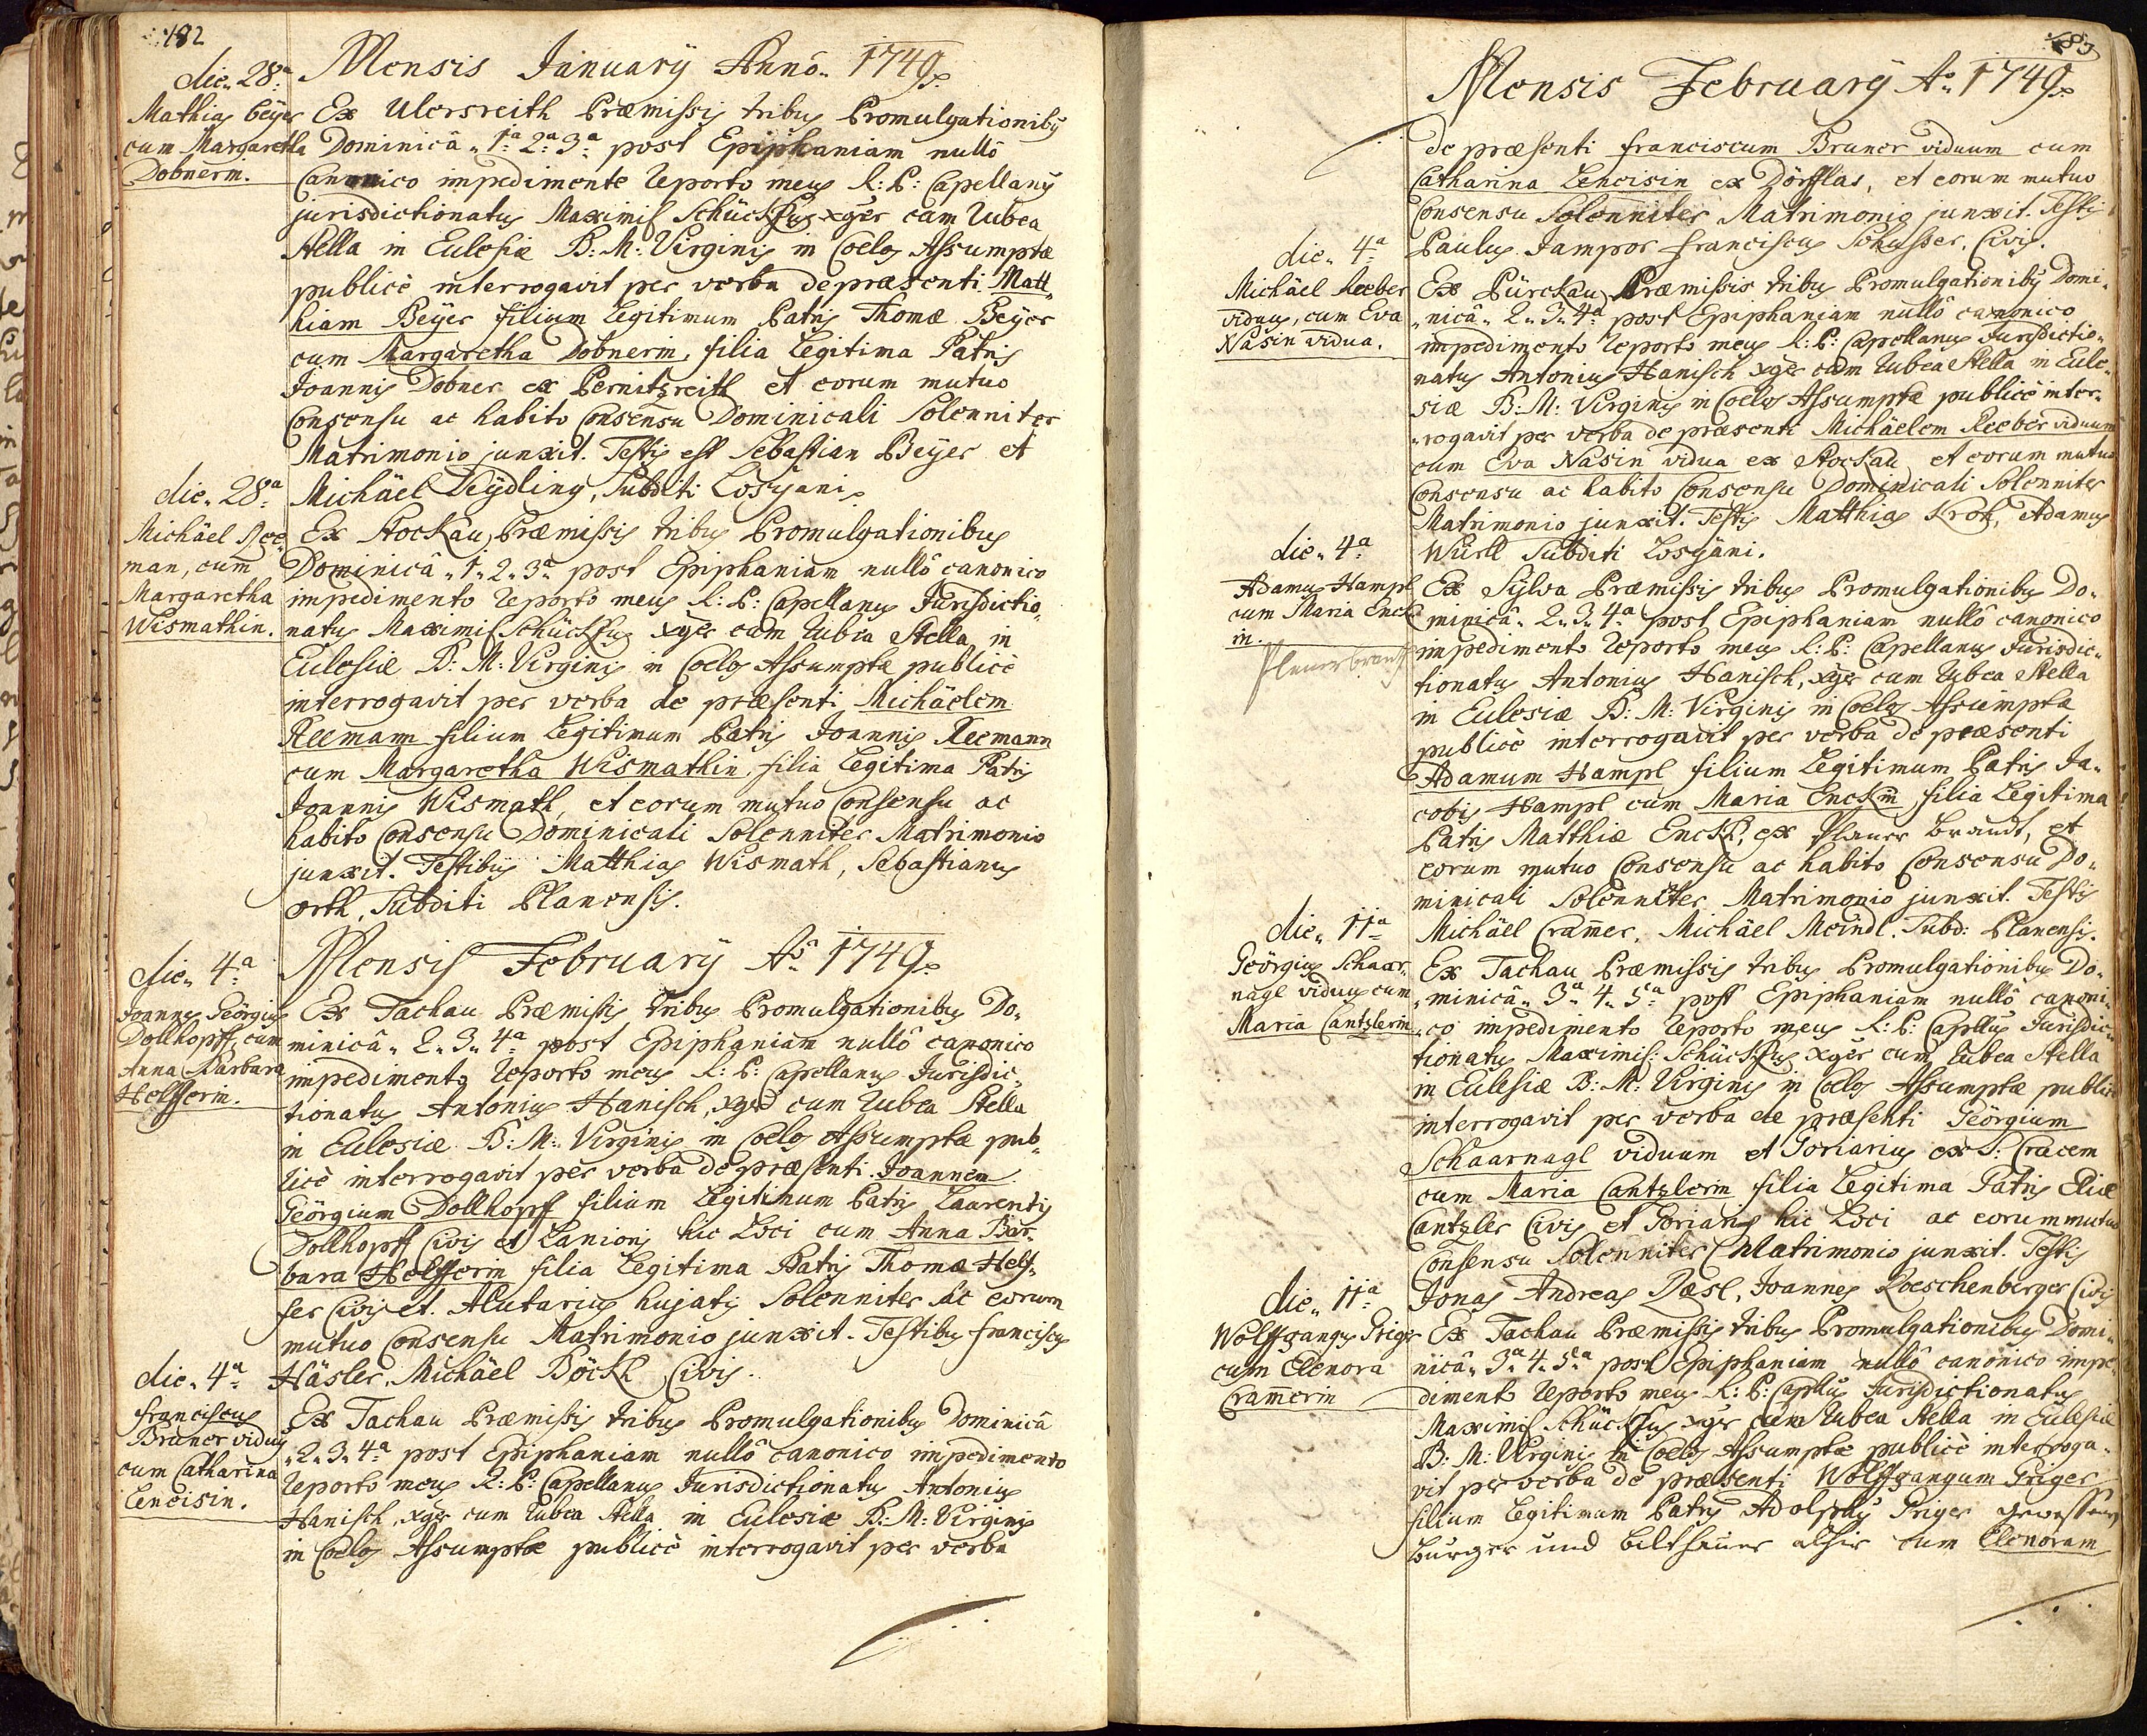 182
Mensis Januarÿ Anno 1749
die 28a
Mathias Beÿer
cum Margaretha
Dobnerin.
Ex Ulersreith Præmissis tribus Promulgationibus
Dominicâ 1a 2a 3a post Epiphaniam nullô
Canonico impedimento reperto meus R: P: Capellanus
jurisdictionatus Maximil Schück xger cum rubea
stella in Eclesiæ B: M: Virginis in Coelos Assumptæ
publicè interrogavit per verba de præsenti Matt
hiam Beÿer filium Legitimum Patris Thomæ Beÿer
cum Margaretha Dobnerin, filia Legitima Patris
Joannis Dobner ex Pernitzreith et eorum mutuo
Consensu ac habito Consensu Dominicali Solenniter
Matrimonio junxit. Testis est Sebastian Beÿer et
Michäel Zeÿdling, Subditi Losÿani
die 28a
Michäel Ree
man, cum
Margaretha
Wismathin.
Ex Stockau Præmissis tribus Promulgationibus
Dominicâ 1. 2. 3a post Epiphaniam nullô canonico
impedimento reperto meus R: P: Capellanus Jurisdictio
natus Maximil Schück xger cum rubea Stella in
Eclesiæ B: M: Virginis in Coelos Assumptæ publicè
interrogavit per verba de præsenti Michäelem
Reemann filium Legitimum Patris Joannis Reemann
cum Margaretha Wismathin, filia Legitima Patris
Joannis Wismath, et eorum mutuo Consensu ac
habito Consensu Dominicali Solenniter Matrimonio
junxit. Testibus Matthias Wismath, Sebastianus
orth, Subditi Planensis.
Mensis February Ao 1749
die 4a
Joannes Geörgius
Dollhopff, cum
Anna Barbara
Helfferin.
Ex Tachau Præmissis tribus Promulgationibus Do
minicâ 2. 3. 4a post Epiphaniam nullô canonico
impedimento reperto meus R: P: Capellanus Jurisdic
tionatus Antonius Hanisch, xger cum rubea Stella
in Eclesiæ B: M: Virginis in Coelos Assumptæ pub
licè interrogavit per verba de præsenti Joannem
Geörgium Dollhopff filium Legitimum Patris Laurentÿ
Dollhopff Civis et Lanionis hic Loci cum Anna Bar
bara Helfferin filia Legitima Patris Thomæ Helf
fer Civis et Alutarius hujatis Solenniter ac eorum
mutuo Consensu Matrimonio junxit. Testibus franciscus
Häsler, Michäel Böckl Civis.
die 4a
franciscus
Bruner viduus
cum Catharina
Lencisin.
Ex Tachau Præmissis tribus Promulgationibus Dominicâ
2. 3. 4a post Epiphaniam nullô canonico impedimento
reperto meus R: P: Capellanus Jurisdictionatus Antonius
Hanisch, xger cum rubea stella in Eclesiæ B: M: Virginis
in Coelos Assumptæ publicè interrogavit per verba
183
Mensis February Ao 1749
de præsenti franciscum Bruner viduum cum
Catharina Lencisin ex Dörfflas, et eorum mutuo
Consensu Solenniter Matrimonio junxit. Testis
Paulus Jampor franciscus Schusser, Civis.
die 4a
Michäel Reeber
viduus, cum Eva
Näsin vidua.
Ex Pürckau Præmissis tribus Promulgationibus Domi
nicâ 2. 3. 4a post Epiphaniam nullô canonico
impedimento reperto meus R: P: Capellanus Jurisdictio
natus Antonius Hanisch xger cum rubea Stella in Ecle
siæ B: M: Virginis in Coelos Assumptæ publicè inter
rogavit per verba de præsenti Michäelem Reeber viduum
cum Eva Näsin vidua ex Stockau et eorum mutuo
Consensu ac habito Consensu Dominicali Solenniter
Matrimonio junxit. Testis Matthias Krok, Adamus
Würll Subditi Losÿani.
die 4a
Adamus Hampl
cum Maria Enck
in.
Planerbrandt
Ex Sÿlva Præmissis tribus Promulgationibus Do
minicâ 2. 3. 4a post Epiphaniam nullô canonico
impedimento reperto meus R: P: Capellanus Jurisdic
tionatus Antonius Hanisch, xger cum rubea Stella
in Eclesiæ B: M: Virginis in Coelos Assumptæ
publicè interrogavit per verba de præsenti
Adamum Hampl filium Legitimum Patris Ja
cobis Hampl cum Maria Enckin, filia Legitima
Patris Matthiæ Enckl, ex Planer Brandt, et
eorum mutuo Consensu ac habito Consensu Do
minicali Solenniter Matrimonio junxit. Testis
Michäel Cramer, Michäel Meindl. Subd: Planensis.
die 11a
Geörgius Schaar
nagl viduus cum
Maria Cantzlerin
Ex Tachau Præmissis tribus Promulgationibus Do
minicâ 3a 4. 5a post Epiphaniam nullô canoni
co impedimento reperto meus R: P: Capllus Jurisdic
tionatus Maximil: Schück xger cum rubea Stella
in Eclesiæ B: M: Virginis in Coelos Assumptæ publicè
interrogavit per verba de præsenti Geörgium
Schaarnagl viduum et Soriarius ex S: Cracem
cum Maria Cantzlerin filia Legitima Patris Eliæ
Cantzler Civis et Sorianis hic Loci ac eorum mutuo
Consensu Solenniter Matrimonio junxit. Testis
Jonas Andreas Pæsl, Joannes Roeschenberger Civis
die 11a
Wolffgangus Griger
cum Elenora
Cramerin
Ex Tachau Præmissis tribus Promulgationibus Domi
nicâ 3a 4. 5a post Epiphaniam nullô canonico impe
dimento reperto meus R: P: Capllus Jurisdictionatus
Maximil Schück xger cum rubea stella in Eclesiæ
B: M: Virginis in Coelos Assumptæ publicè interroga
vit per verba de præsenti Wolffgangum Griger
filium Legitimum Patris Adolphÿ Griger gewesster
burger und bilthauer alhir cum Elenoram